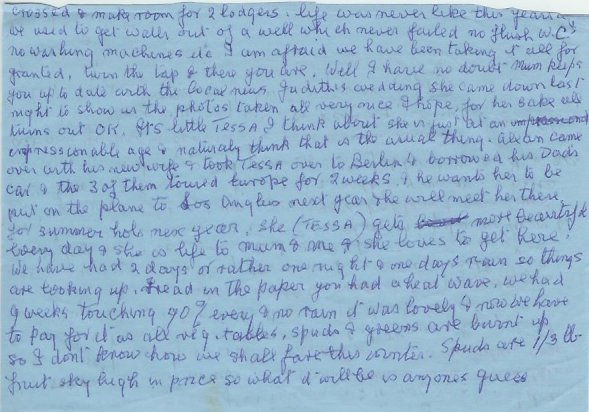 crossed & make room for 2 lodgers. life was never like this years a
we used to get water out of a well which never failed no flush W.C's
no washing machines etc I am afraid we have been taking it all for
granted, turn the tap & there you are. Well I have no doubt Mum keeps
you up to date with the local news, Judith's wedding she came down last
night to show us the photos taken all very nice I hope, for her sake all
turns out OK. It's little TESSA I think about she is just at an
impressionable age & naturaly think that is the usual thing. Alan came
over with his new wife & took TESSA over to Berlin & borrowed his Dads
car & the 3 of them toured Europe for 2 weeks, & he wants her to be
put on the plane to Los Angles next year & he will meet her there,
for summer hols next year. She (TESSA) gets more beautiful
every day & she is life to mum & me & she loves to get here.
We have had 2 days or rather one night & one days rain so things
are looking up. Read in the paper you had a heat wave, we had
9 weeks touching 90° every & no rain it was lovely & now we have
to pay for it as all veg. tables, spuds & greens are burnt up
so I dont know how we shall fare this winter. Spuds are 1/3 lb
fruit sky high in price so what it will be is anyones guess